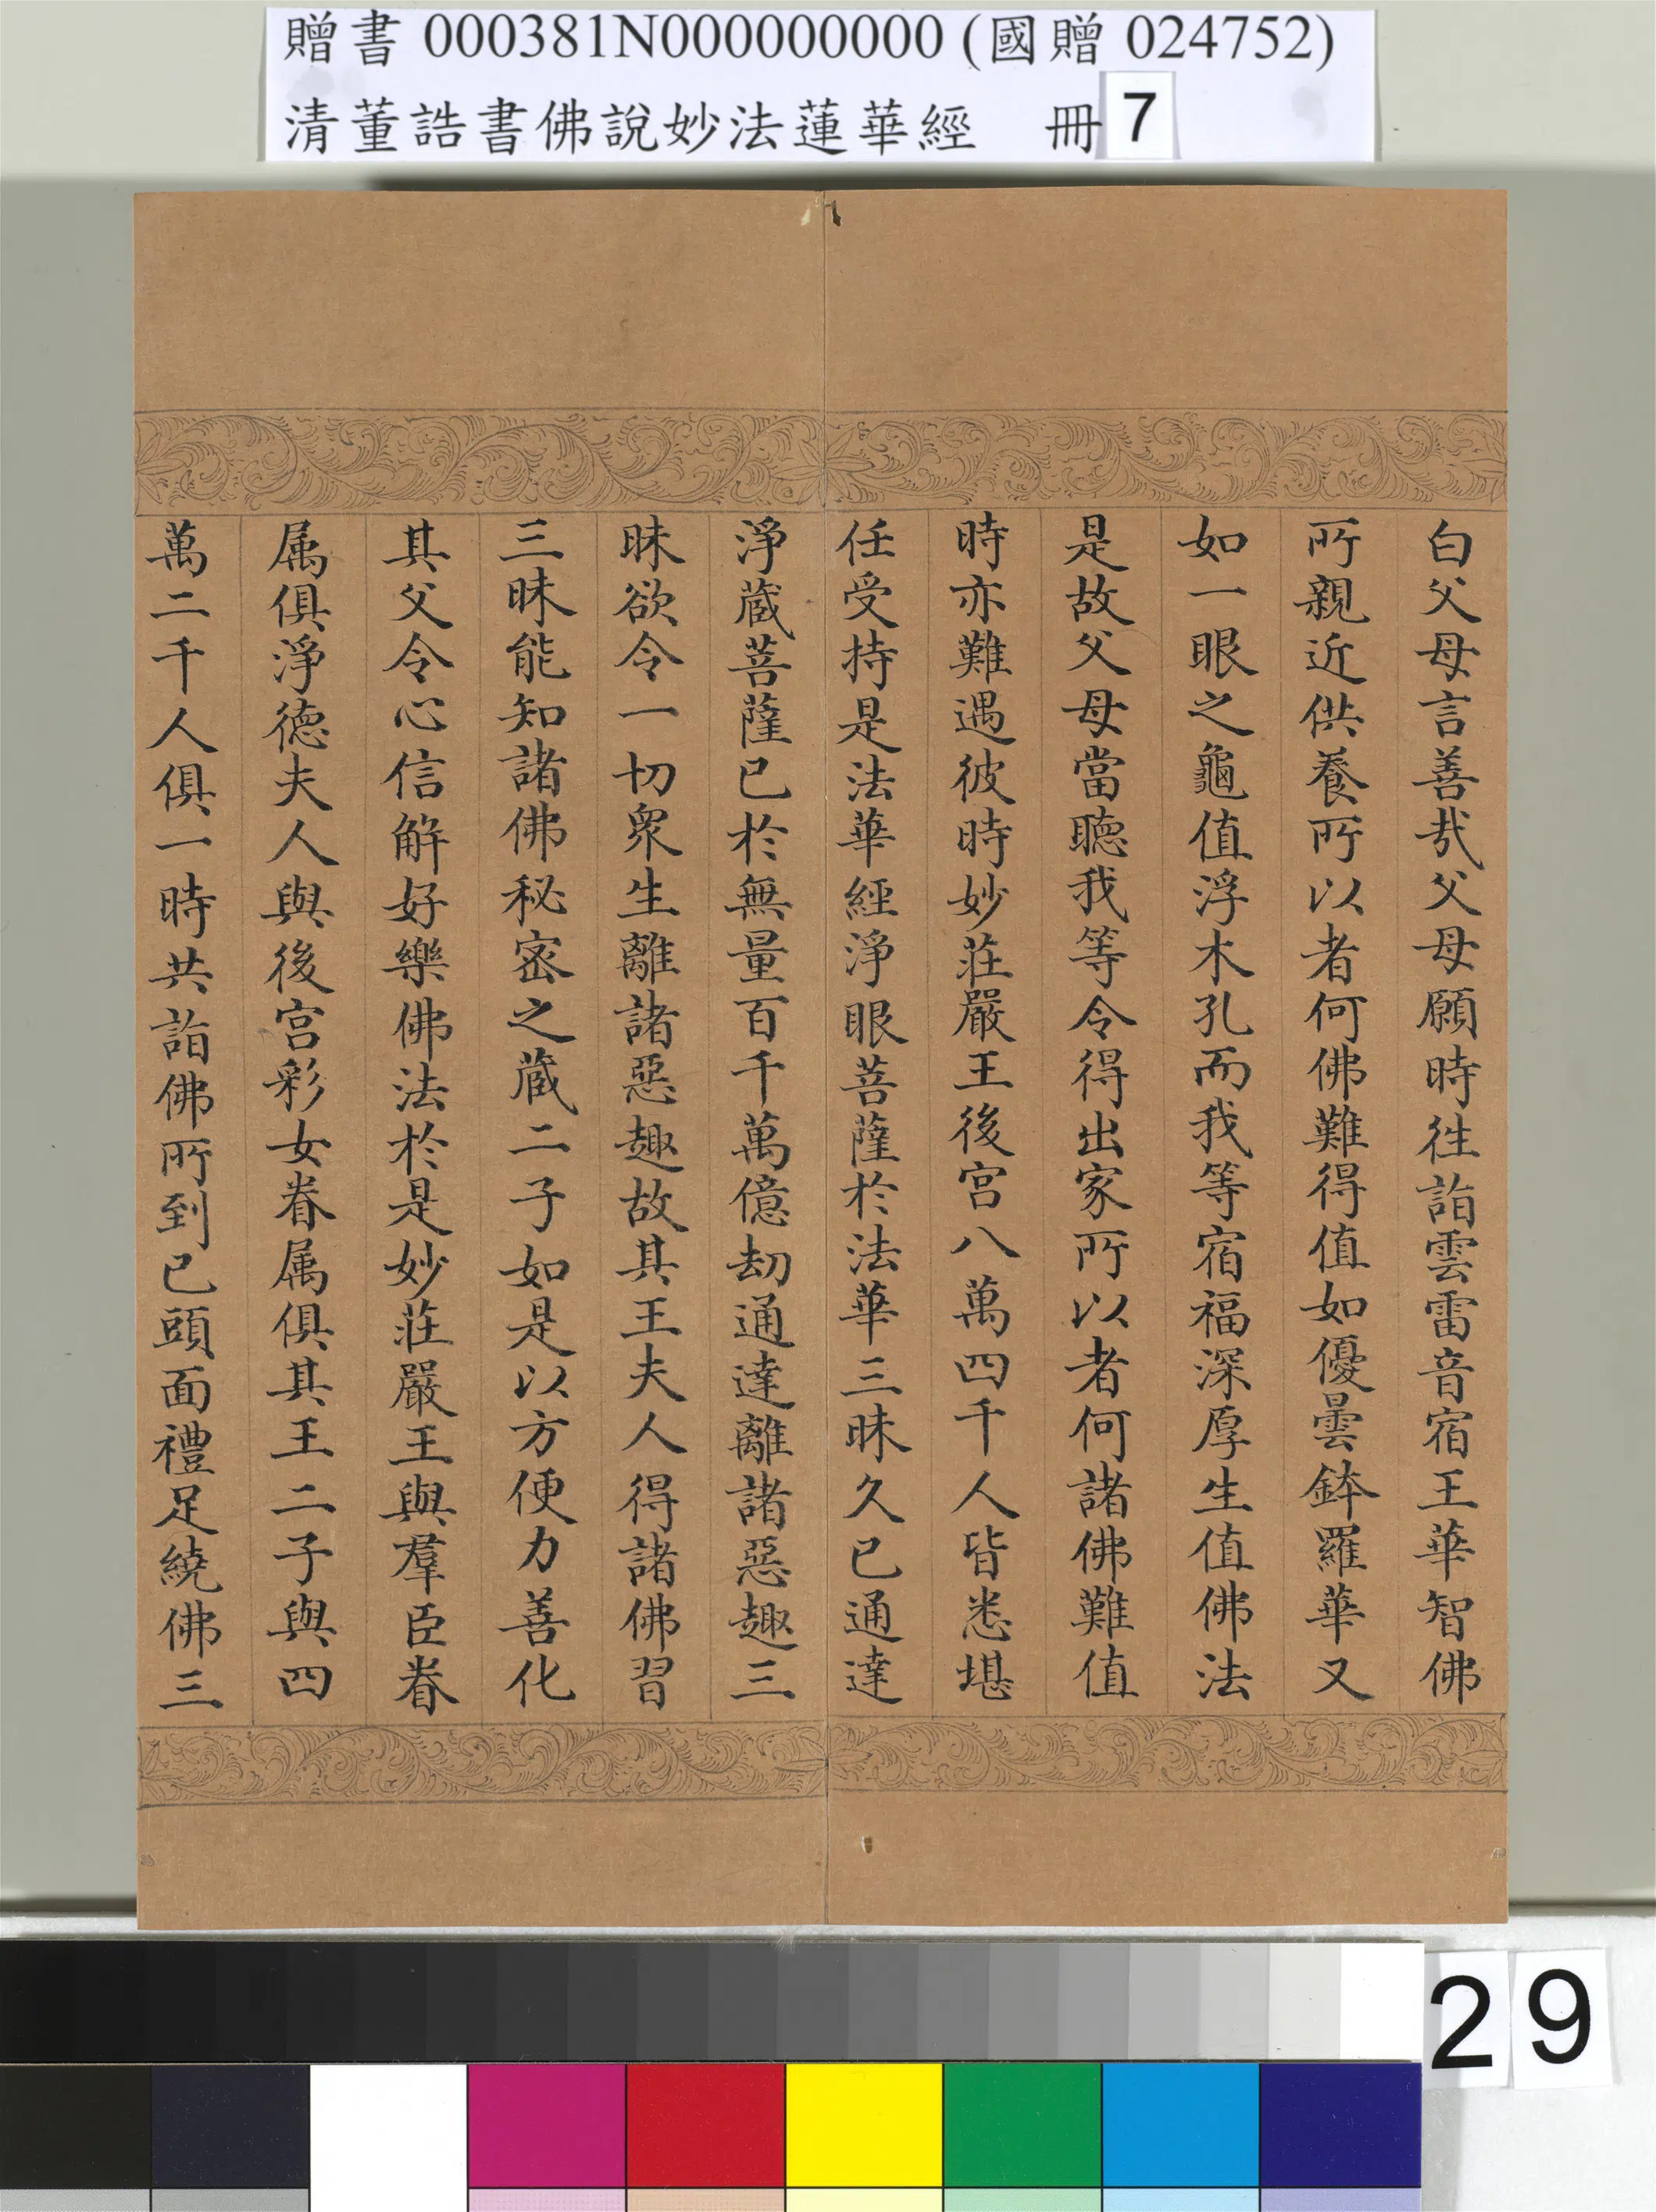 贈書 000381N000000000 (國贈 024752)
清董誥書佛說妙法蓮華經 冊 7
白父母言善哉父母願時徃詣雲雷音宿王華智佛
所親近供養所以者何佛難得值如優曇鉢羅華又
如一眼之龜值浮木孔而我等宿福深厚生值佛法
是故父母當聽我等令得出家所以者何諸佛難值
時亦難遇彼時妙莊嚴王後宮八萬四千人皆悉堪
任受持是法華經淨眼菩薩於法華三昧久已通達
淨藏菩薩已於無量百千萬億劫通達離諸惡趣三
昧欲令一切眾生離諸惡趣故其王夫人得諸佛習
三昧能知諸佛秘密之藏二子如是以方便力善化
其父令心信解好樂佛法於是妙莊嚴王與羣臣眷
属俱淨德夫人與後宮彩女眷属俱其王二子與四
萬二千人俱一時共詣佛所到已頭面禮足繞佛三
29